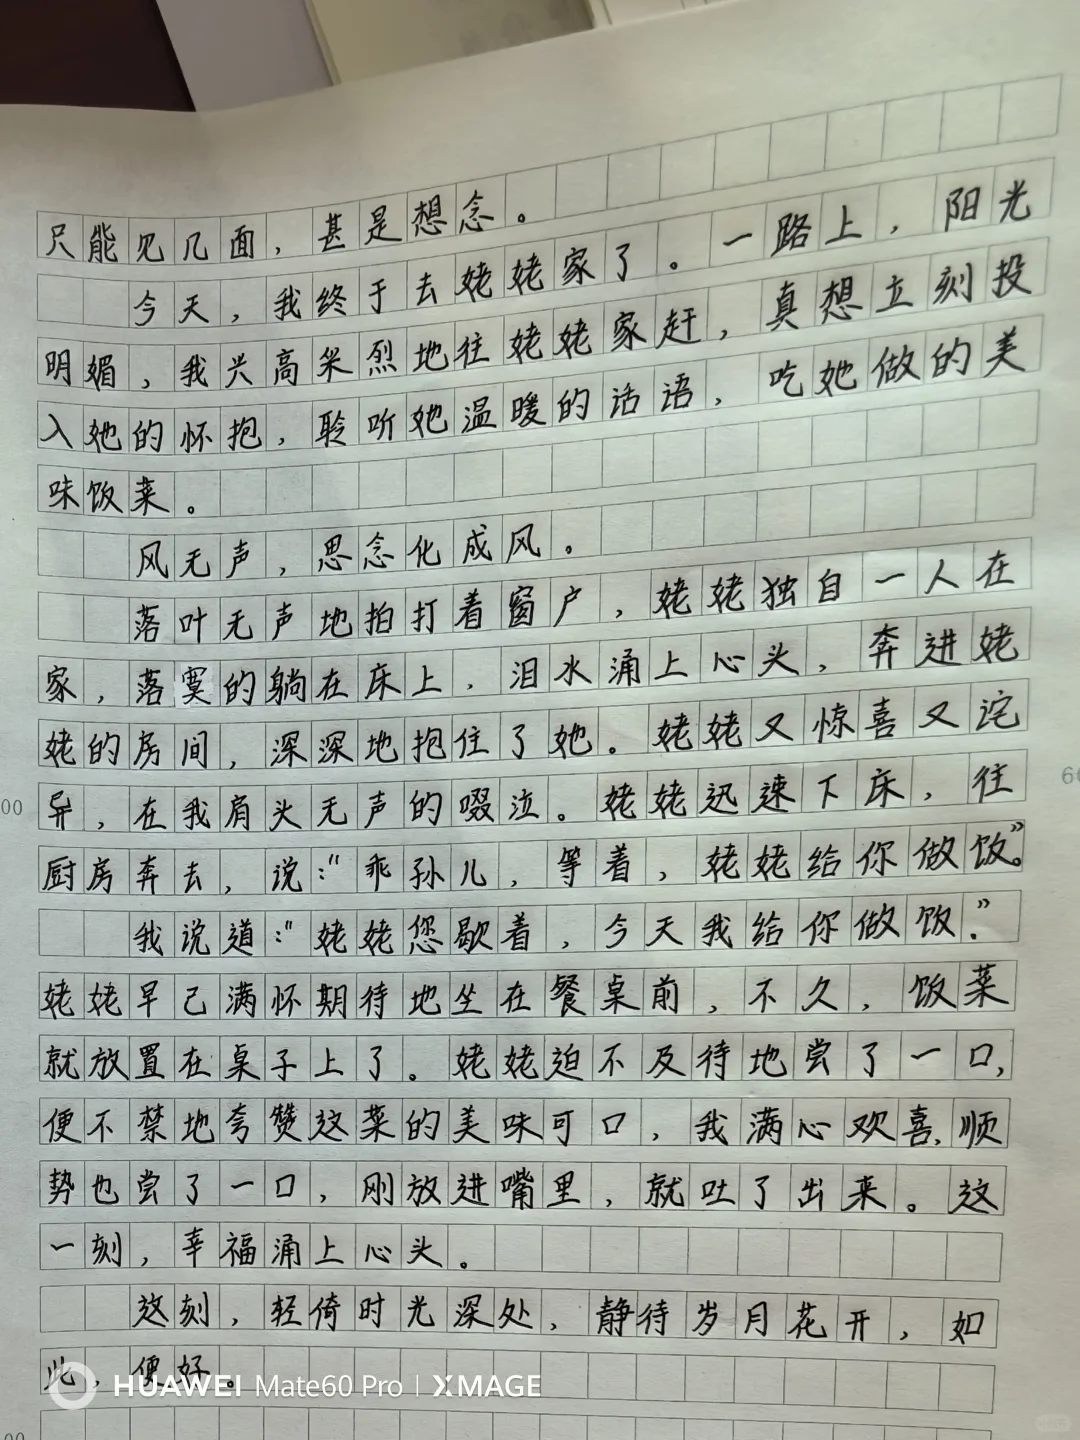 只能见几面，甚是想念。
今天，我终于去姥姥家了。一路上，阳光
明媚，我兴高采烈地往姥姥家赶，真想立刻投
入她的怀抱，聆听她温暖的话语，吃她做的美
味饭菜。
风无声，思念化成风。
落叶无声地拍打着窗户，姥姥独自一人在
家，落寞的躺在床上，泪水涌上心头，奔进姥
姥的房间，深深地抱住了她。姥姥又惊喜又诧
异，在我肩头无声的啜泣。姥姥迅速下床，往
厨房奔去，说："乖孙儿，等着，姥姥给你做饭。"
我说道："姥姥您歇着，今天我给你做饭."
姥姥早己满怀期待地坐在餐桌前，不久，饭菜
就放置在桌子上了。姥姥迫不及待地尝了一口，
便不禁地夸赞这菜的美味可口，我满心欢喜，顺
势也尝了一口，刚放进嘴里，就吐了出来。这
一刻，幸福涌上心头。
这刻，轻倚时光深处，静待岁月花开，如
此，便好。
HUAWEI Mate60 Pro | XMAGE
00
60
00